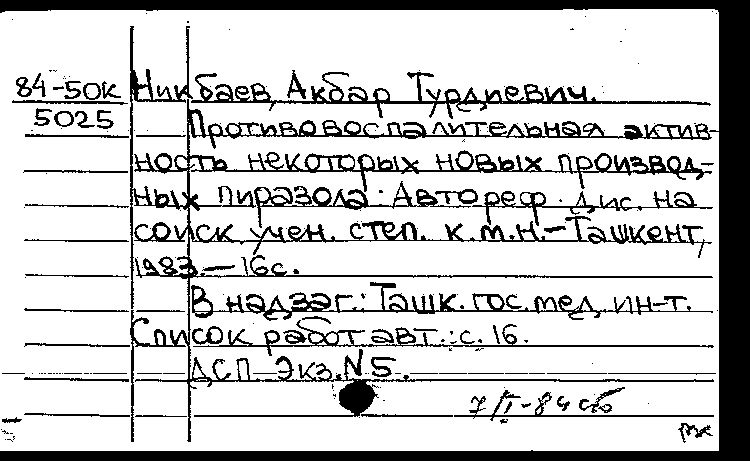 84-50К Никбаев, Акбар Турдиевич.
5025 Противовоспалительная актив-
ность некоторых новых производ-
ных пиразола: Автореф. дис. на
соиск. учен. степ. к.м.н.-Ташкент,
1983.-16с.
В надзаг.: Ташк.гос.мед. ин-т.
Список работ авт.: с. 16.
ДСП. Экз. N5.
7/I-84